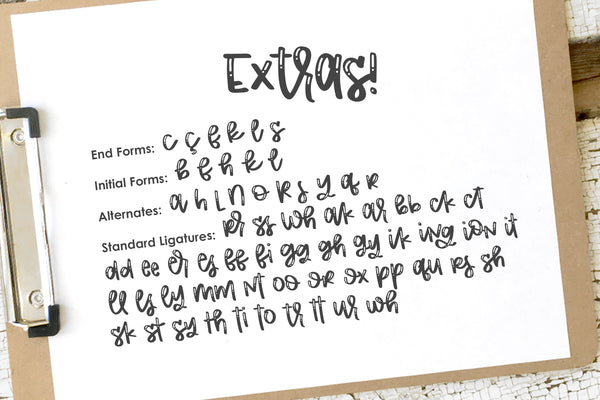 Extras!
End Forms: c ç f k l s
Initial Forms: b f h k l
Alternates: a h L N O R S y q r
Standard Ligatures: er ss wh ak ar bb ck ct
dd ee er es ff fi gg gh gy ik ing ion it
ll ls ly mm nt oo or ox pp qu rs sh
sk st sy th ti to tr tt ur wh